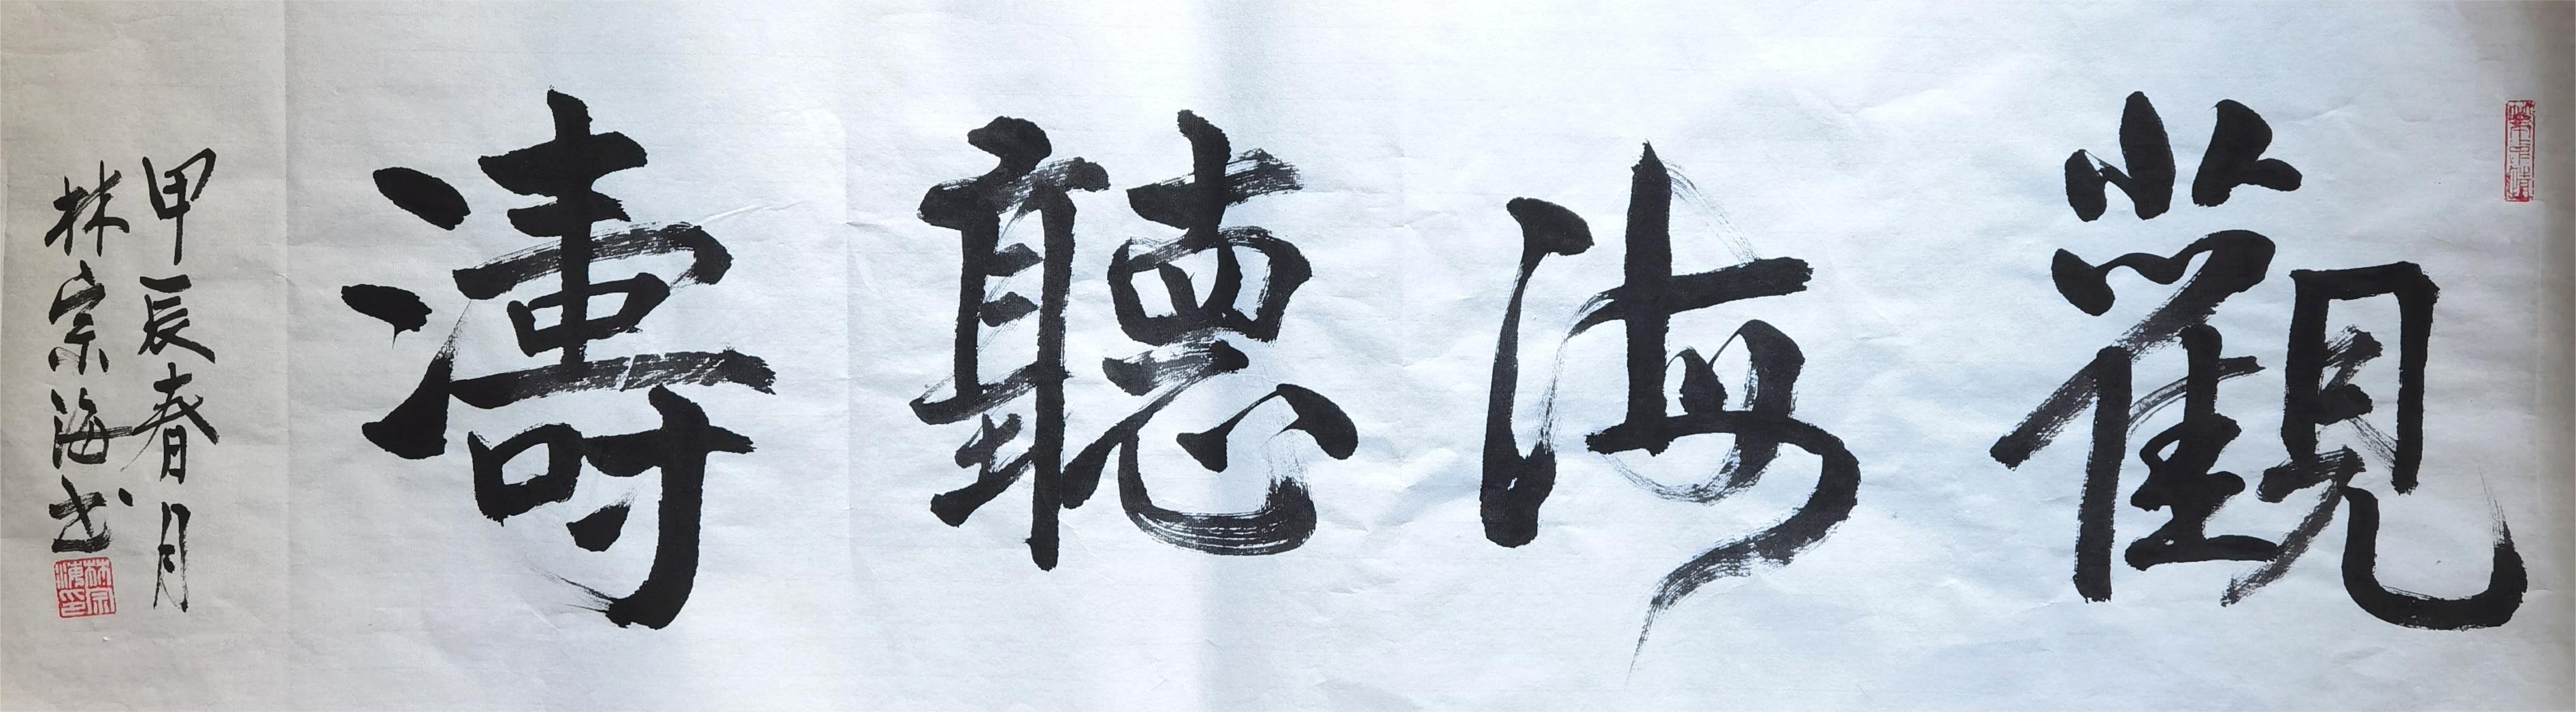 觀海聽濤
甲辰春月
林宗海书
林宗海印